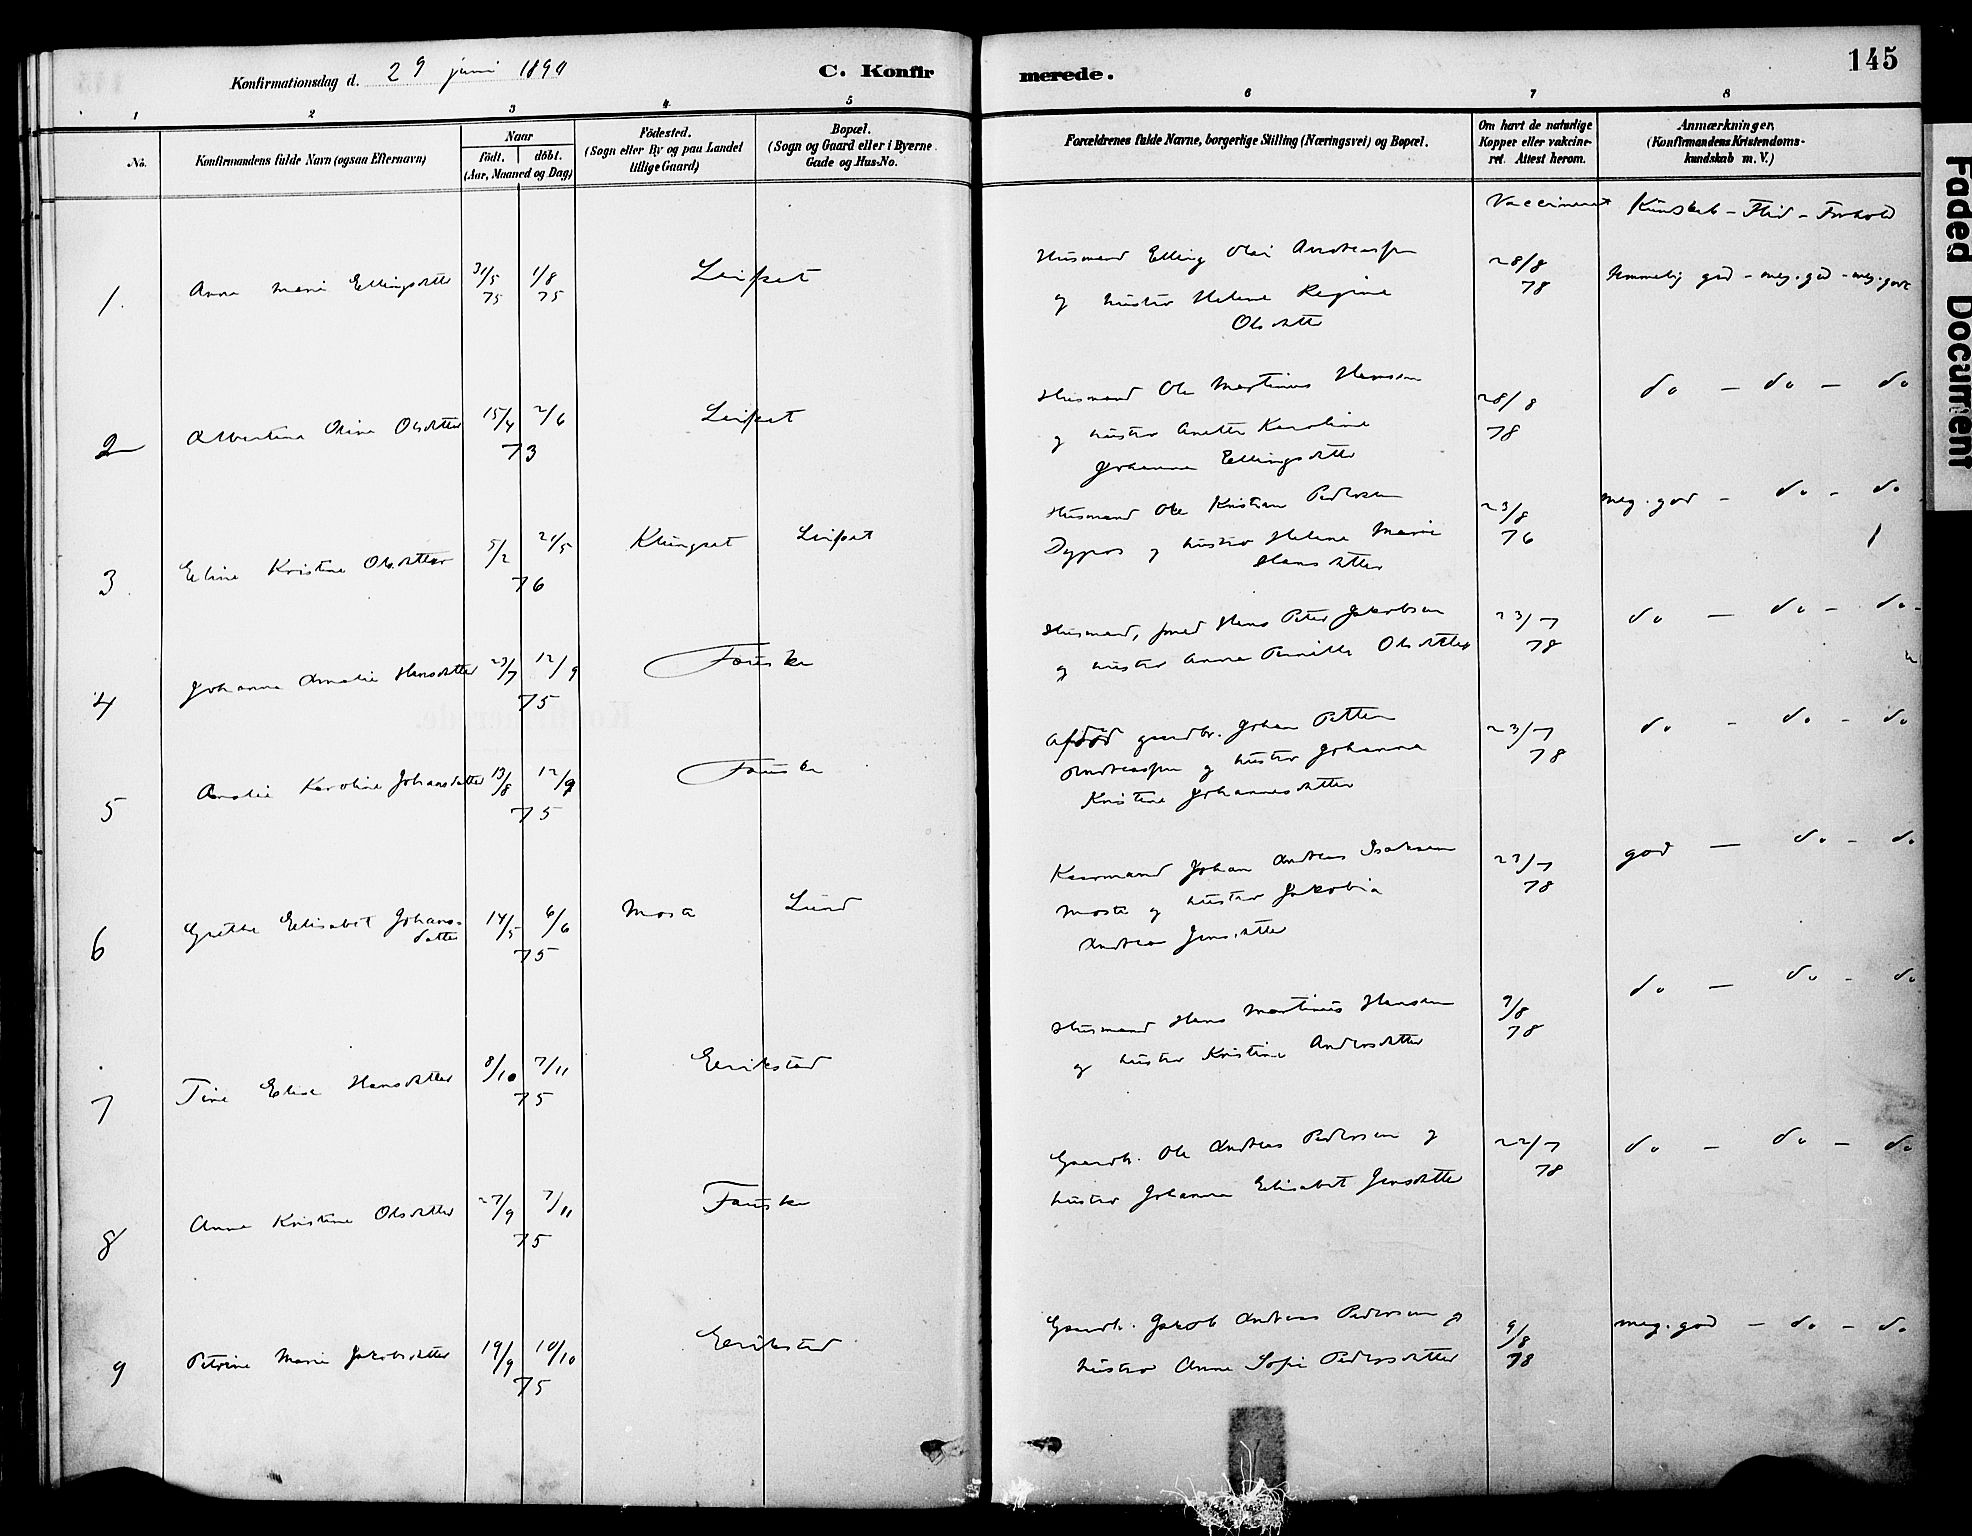 Konfirmationsdag d. 29 juni 1890
C. Konfirmerede.
145
1 2 3 4 5 6 7 8
No.
Konfirmandens fulde Navn (ogsaa Efternavn)
Naar
födt. döbt.
(Aar, Maaned og Dag)
Födested.
(Sogn eller By og paa Landet
tillige Gaard)
Bopæl.
(Sogn og Gaard eller i Byerne
Gade og Hus-No.
Forældrenes fulde Navne, borgerlige Stilling (Næringsvei) og Bopæl.
Om havt de naturlige
Kopper eller vakcine-
ret. Attest herom.
Anmærkninger.
(Konfirmandens Kristendoms-
kundskab m. V.)
Vaccineret Kundskab - Flid - Forhold
1. Anna Marie Ellingsdatter 31/5 75 1/8 75 Leifset
Husmand Elling Olai Andreassen
og hustru Helene Regine
Olsdatter
28/8 78 temmelig god - meg. god - meg. godt
2 Albertina Olina Olsdatter 15/4 2/6 73 Leifset
Husmand Ole Martinus Hansen
og hustru Anette Karoline
Johanna Ellingsdatter
28/8 78 do - do - do
3. Eline Kristine Olsdatter 5/2 21/5 76 Klungset Leifset
Husmand Ole Kristian Pedersen
og hustru Helene Marie
Hansdatter
23/8 76 meg. god - do - do
4 Johanna Amalie Hansdatter 23/7 12/9 75 Fauske
Husmand, smed Hans Peter Jakobsen
og hustru Anna Pernille Olsdatter
23/7 78 do - do - do -
5 Amalie Karoline Johansdatter 13/8 12/9 75 Fauske
Afdød gaardbr. Johan Petter
Andreassen og hustru Johanna
Kristine Johannesdatter
23/7 78 do - do - do
6 Grethe Elisabet Johans-
datter 14/5 6/6 75 Moss Lund
Johan Andreas Isaksen
og hustru Jakobia
Andrea Jensdatter
23/7 78 god - do - do
7 Tine Elise Hansdatter 8/10 7/11 75 Eerikstad
Husmand Hans Martinus Hansen
og hustru Kristine Andersdatter
9/8 78 do - do - do
8 Anne Kristine Olsdatter 27/9 7/11 75 Fauske
Gaardb. Ole Andreas Pedersen og
hustru Johanna Elisabet Jensdatter
22/7 78 do - do - do
9 Petrine Marie Jakobsdatter 19/9 10/10 75 Eerikstad
Gaardb. Jakob Andreas Pedersen og
hustru Anne Sofie Pedersdatter
9/8 78 meg. god - do - do
Faded Document